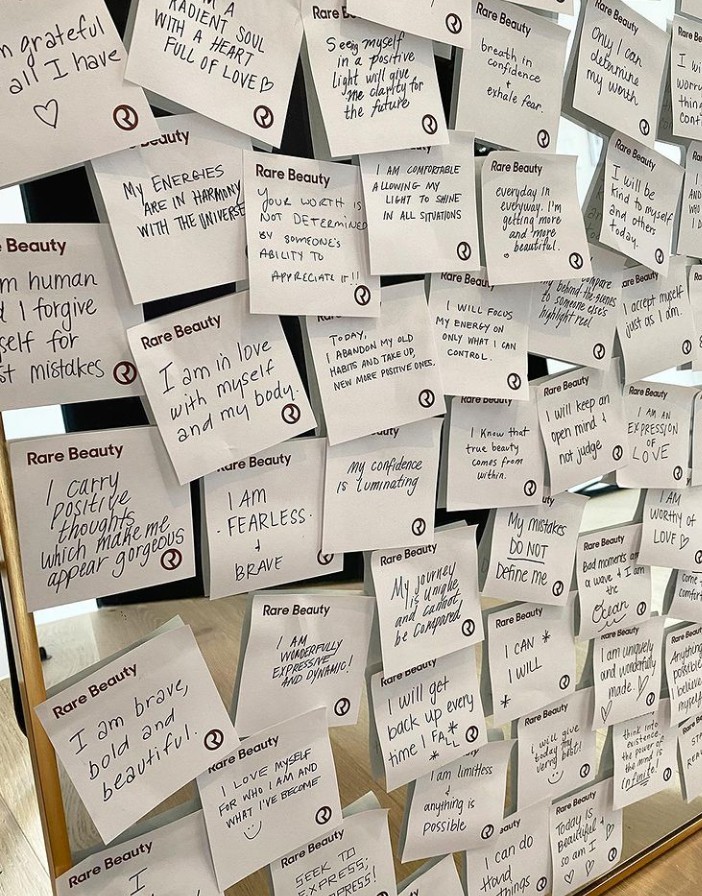 m grateful
all I have
RADIENT SOUL
WITH A HEART
FULL OF LOVE
Rare
Seeing myself
in a positive
light will give
me clarity for
the future
breath in
confidence
+
exhale fear.
Only I can
determine
my worth
I wi
worr
thin
cont
Beauty
MY ENERGIES
ARE IN HARMONY
WITH THE UNIVERSE
Rare Beauty
YOUR WORTH IS
NOT DETERMINED
BY SOMEONE'S
ABILITY TO
APPRECIATE IT!!
I AM COMFORTABLE
ALLOWING MY
LIGHT TO SHINE
IN ALL SITUATIONS
Rare Beauty
everyday in
everyway. I'm
getting more
and more
beautiful.
Rare Beauty
I will be
kind to myself
and others
today.
Beauty
m human
I forgive
self for
st mistakes
Rare Beauty
I am in love
with myself
and my body.
TODAY,
I ABANDON MY OLD
HABITS AND TAKE UP,
NEW MORE POSITIVE ONES.
Rare Beauty
I WILL FOCUS
MY ENERGY ON
ONLY WHAT I CAN
CONTROL.
compare
my behind-the-scenes
to someone else's
highlight reel
I accept myself
just as I am.
Rare Beauty
I carry
positive
thoughts
which make me
appear gorgeous
Rare Beauty
I AM
·FEARLESS·
+
BRAVE
Beauty
My confidence
is luminating
Rare Beauty
I know that
true beauty
comes from
within.
Rare Beauty
I will keep an
open mind +
not judge
Rare Beauty
I AM AN
EXPRESSION
OF
LOVE
My mistakes
DO NOT
Define me
I AM
WORTHY OF
LOVE
Rare Beauty
Bad moments are
a wave + I am
the
Ocean
Rare Beauty
My journey
is unique
and cannot
be compared
Rare Beauty
I AM
WONDERFULLY
EXPRESSIVE
AND DYNAMIC!
Rare Beauty
I CAN *
I WILL
*
Rare Beauty
I am uniquely
and wonderfully
made
Rare
Anything
possible
I believe
myself
Rare Beauty
I am brave,
bold and
beautiful.
Rare Beauty
I will get
back up every
time I FALL
Rare Beauty
i will give
today my
verry best!
think into
existence
the power of
the mind is
infinite!
Rare Beauty
I LOVE MYSELF
FOR WHO I AM AND
WHAT I'VE BECOME
Rare Beauty
I am limitless
+
anything is
possible
Rare Beauty
Today is
Beautiful +
so am I
Rare Beauty
I
Rare Beauty
SEEK TO
EXPRESS;
Beauty
I can do
Hard
things